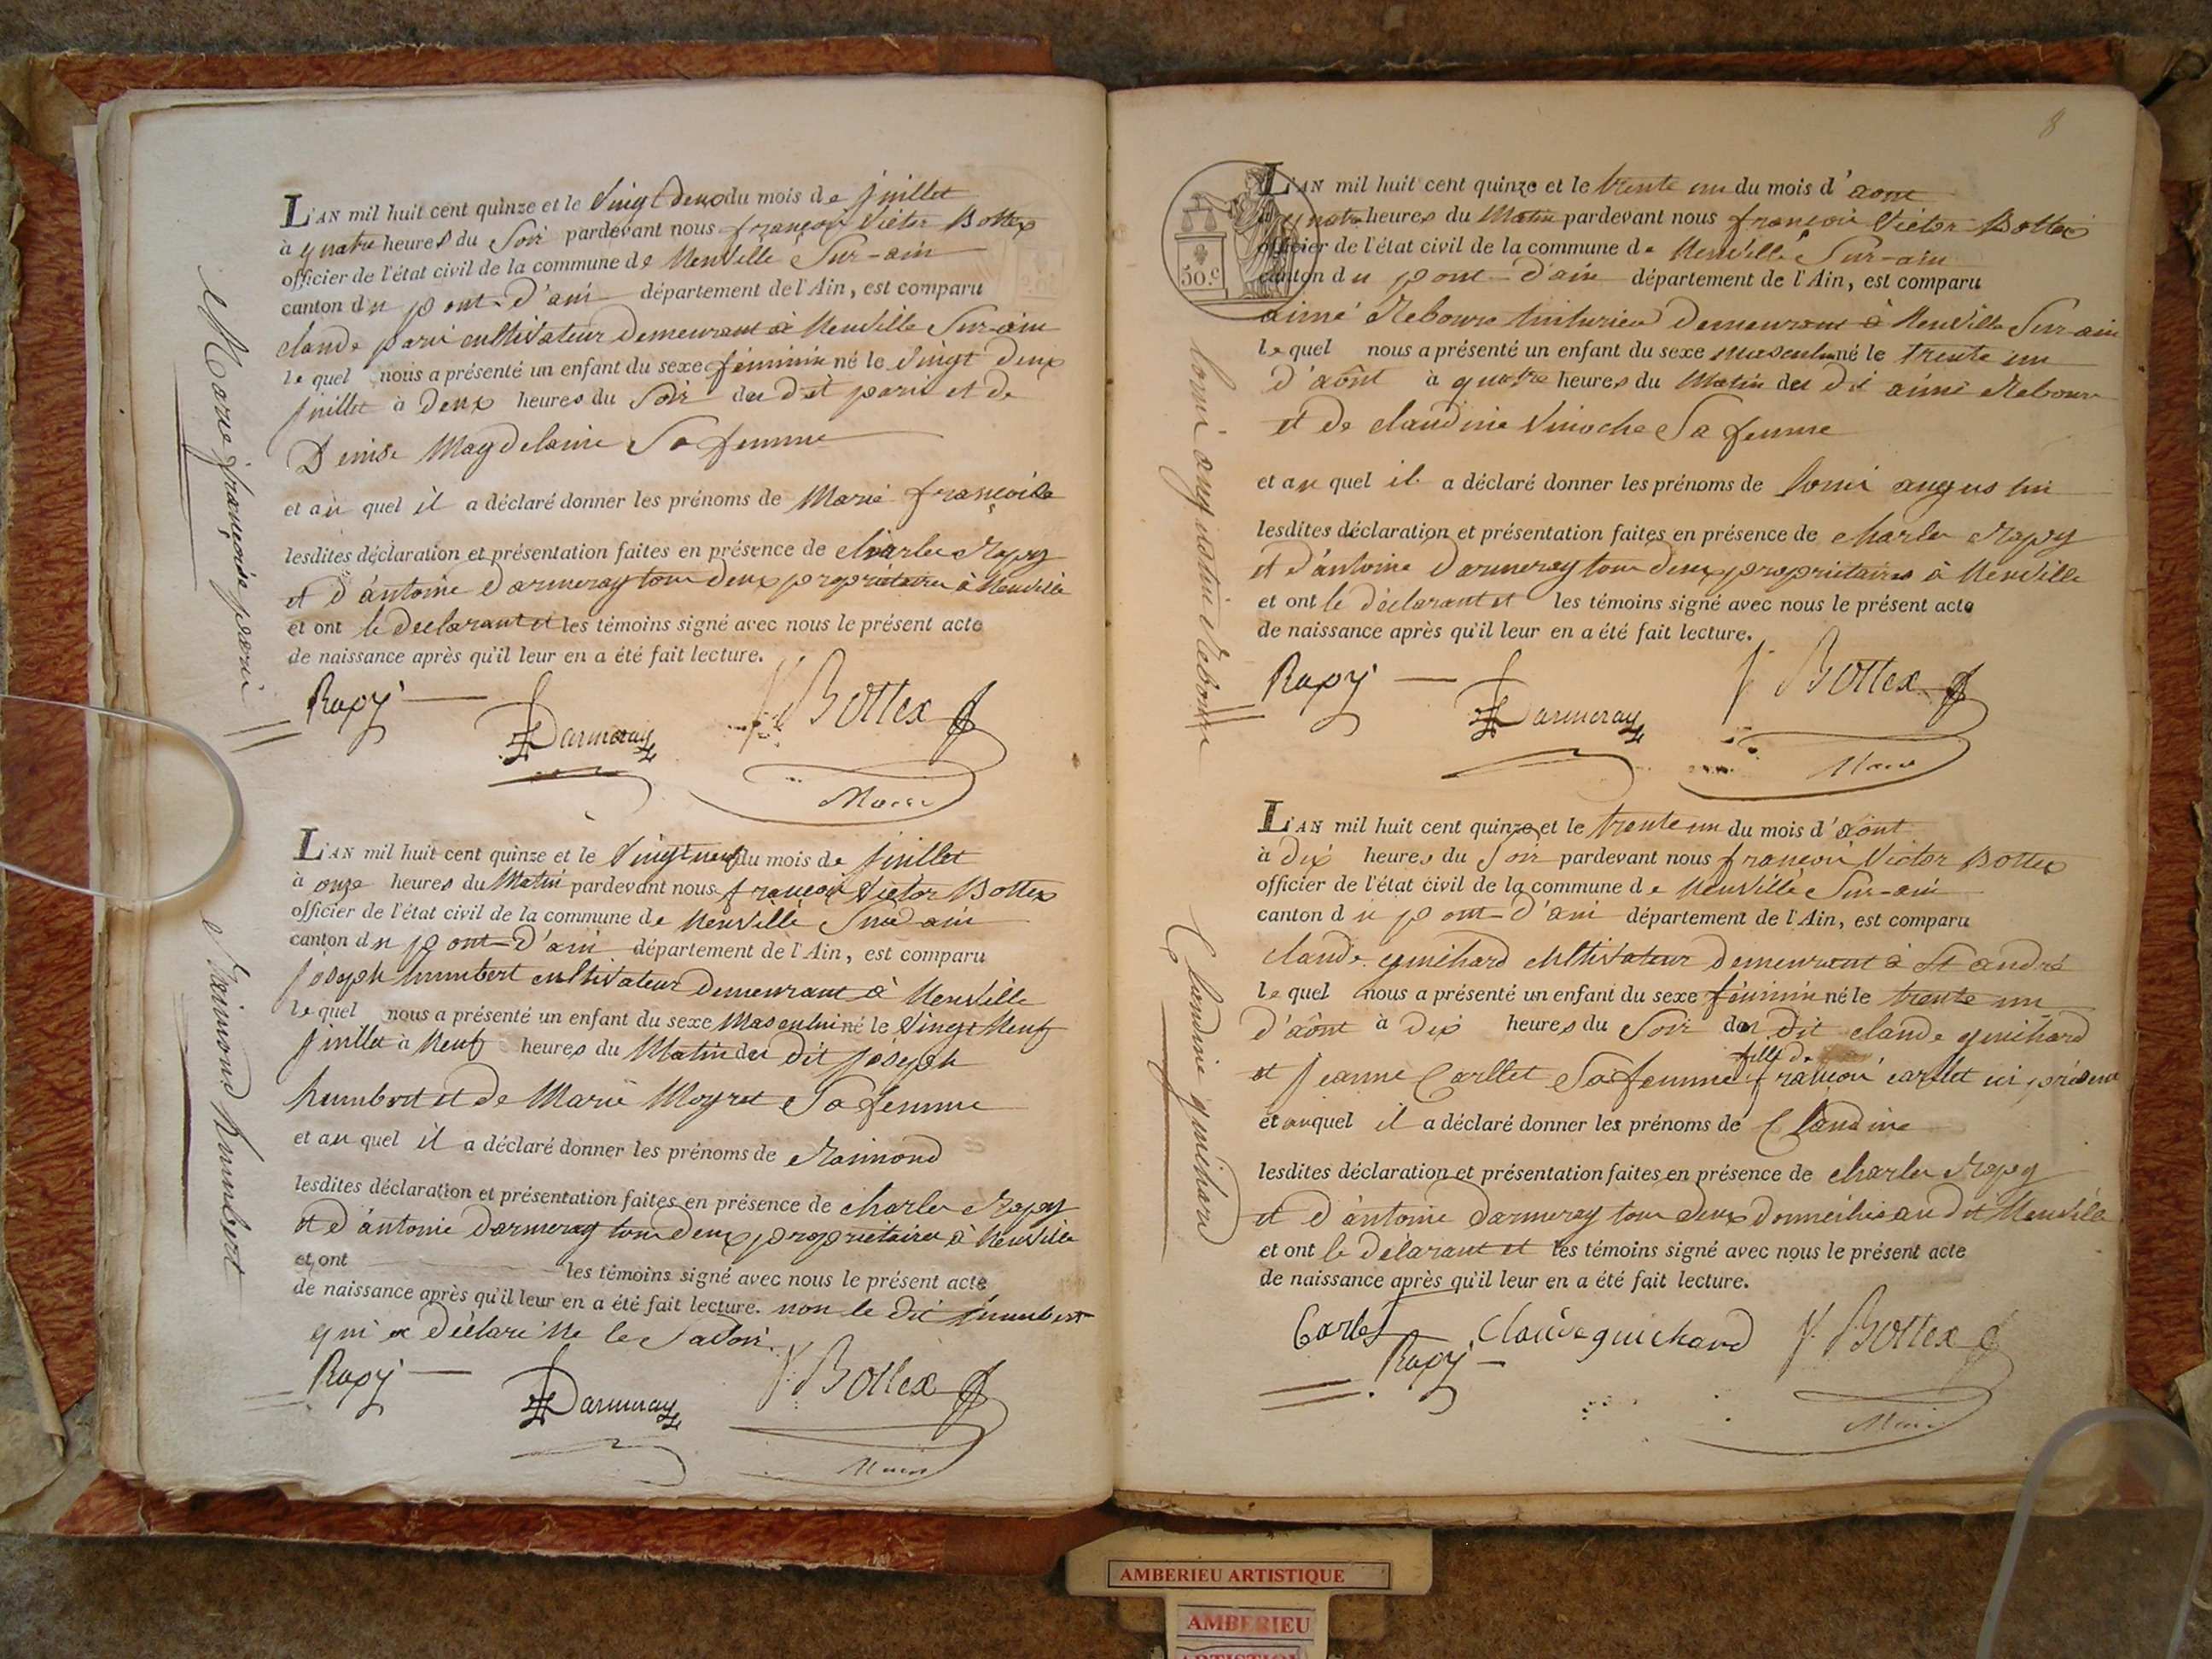 L'AN mil huit cent quinze et le vingt deux du mois de juillet
à quatre heures du Soir pardevant nous françois Victor Bottex
officier de l'état civil de la commune de Neuville Sur-ain
canton du pont-d'ain département de l'Ain, est comparu
claude paris cultivateur demeurant à Neuville Sur-ain
lequel nous a présenté un enfant du sexe féminin né le vingt deux
juillet à deux heures du Soir du dit paris et de
Denise Magdelaine Sa femme
et au quel il a déclaré donner les prénoms de Marie françoise
lesdites déclaration et présentation faites en présence de charles Rapy
et d'antoine Darmeray tous deux propriétaires à Neuville
et ont le déclarant et les témoins signé avec nous le présent acte
de naissance après qu'il leur en a été fait lecture.
Rapy Darmeray V Bottex
Maire
Marie françoise paris
L'AN mil huit cent quinze et le vingt neuf du mois de juillet
à onze heures du Matin pardevant nous françois Victor Bottex
officier de l'état civil de la commune de Neuville Sur ain
canton du pont-d'ain département de l'Ain, est comparu
joseph humbert cultivateur demeurant à Neuville
lequel nous a présenté un enfant du sexe Masculin né le vingt Neuf
juillet à Neuf heures du Matin du dit joseph
humbert et de Marie Moyret Sa femme
et au quel il a déclaré donner les prénoms de Raimond
lesdites déclaration et présentation faites en présence de charles Rapy
et d'antoine Darmeray tous deux propriétaires à Neuville
et ont les témoins signé avec nous le présent acte
de naissance après qu'il leur en a été fait lecture. non le dit humbert
qui a déclaré Ne le Savoir.
Rapy Darmeray V Bottex
Maire
Raimond humbert
8
L'AN mil huit cent quinze et le trente un du mois d'aout
à quatre heures du Matin pardevant nous françois Victor Bottex
officier de l'état civil de la commune de Neuville Sur-ain
canton du pont-d'ain département de l'Ain, est comparu
50.c
aimé Rebours tinturier demeurant à Neuville Sur-ain
lequel nous a présenté un enfant du sexe masculin né le trente un
d'aôut à quatre heures du Matin du dit aimé Rebours
et de claudine Vinoche Sa femme
et au quel il a déclaré donner les prénoms de louis augustin
lesdites déclaration et présentation faites en présence de charles Rapy
et d'antoine Darmeray tous deux propriétaires à Neuville
et ont le déclarant et les témoins signé avec nous le présent acte
de naissance après qu'il leur en a été fait lecture.
Rapy Darmeray V Bottex
Maire
louis augustin Rebours
L'AN mil huit cent quinze et le trente un du mois d'aôut
à dix heures du Soir pardevant nous françois Victor Bottex
officier de l'état civil de la commune de Neuville Sur-ain
canton du pont-d'ain département de l'Ain, est comparu
claude guichard cultivateur demeurant à St andré
lequel nous a présenté un enfant du sexe féminin né le trente un
d'aôut à dix heures du Soir du dit claude guichard
fille de
et jeanne Carllet Sa femme françois carllet ici présent
et auquel il a déclaré donner les prénoms de Claudine
lesdites déclaration et présentation faites en présence de charles Rapy
et d'antoine Darmeray tous deux domiciliés au dit Neuville
et ont le délarant et les témoins signé avec nous le présent acte
de naissance après qu'il leur en a été fait lecture.
Carlet Claude guichard V Bottex
Rapy
Maire
Claudine guichard
AMBERIEU ARTISTIQUE
AMBERIEU
ARTISTIQUE